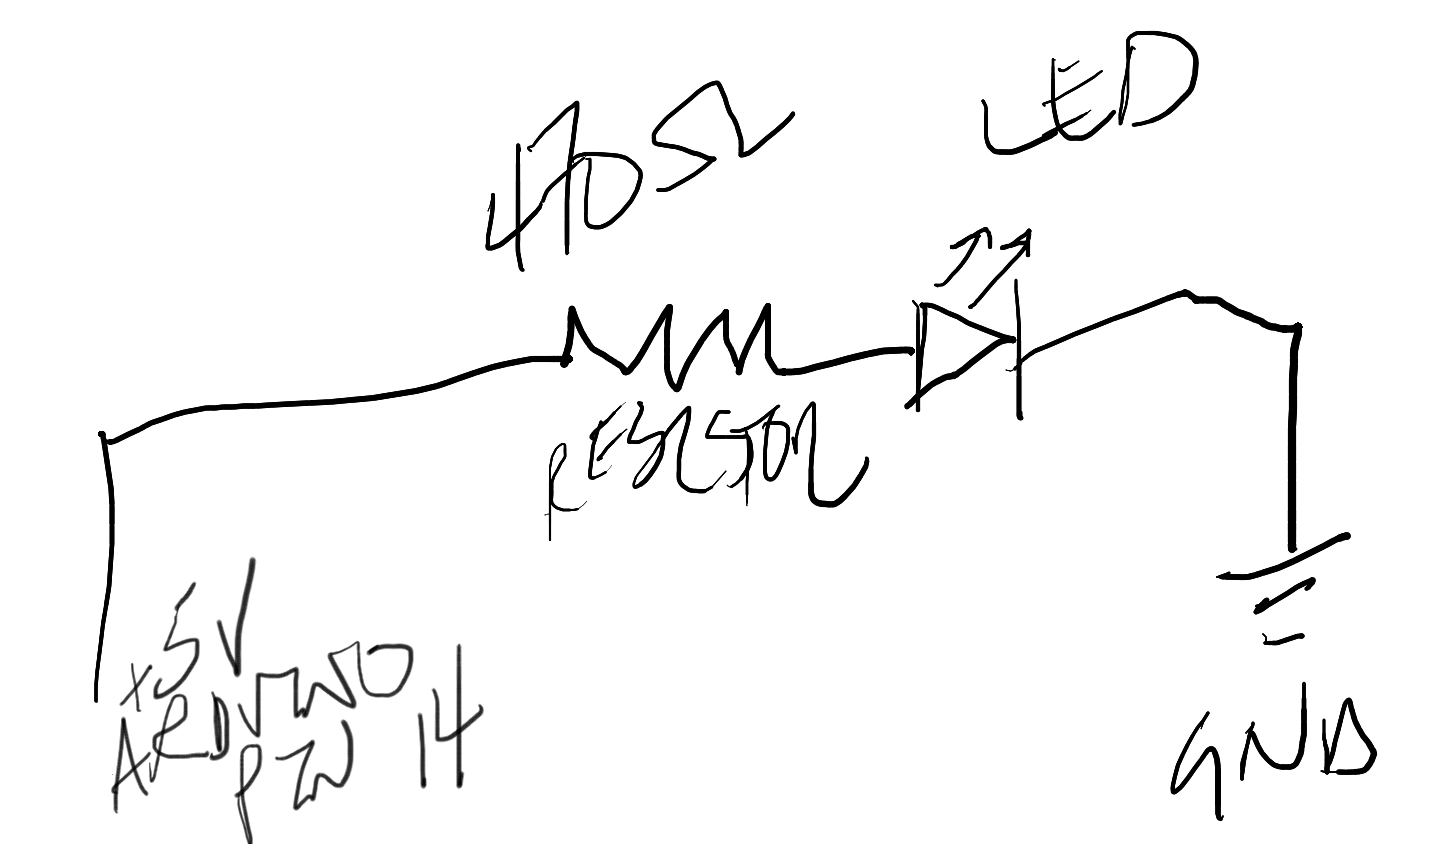 470Ω
LED
RESISTOR
+5V
ARDUINO
PIN 14
GND